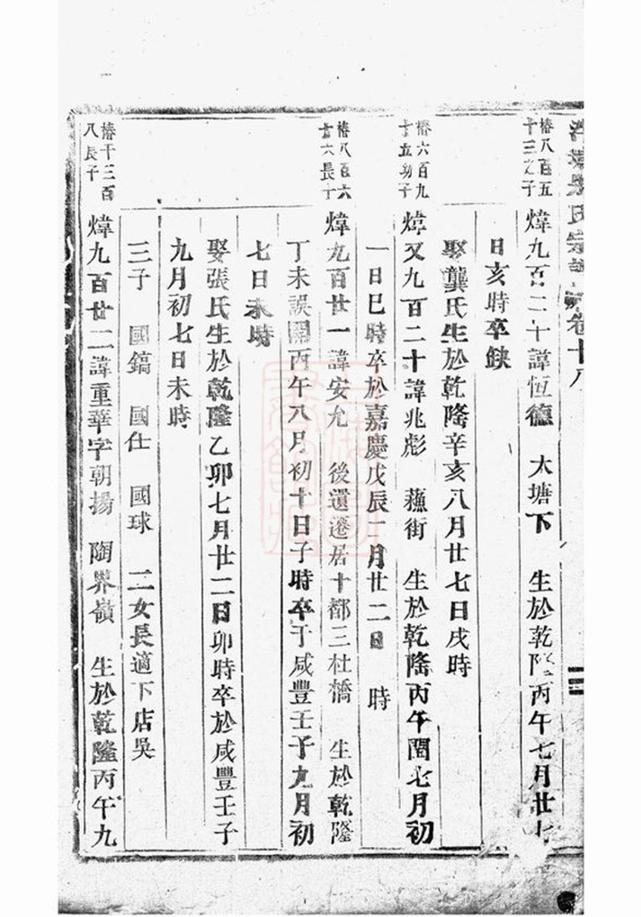 氏宗譜 卷十八
椿八百五
十三之子
煒九百二十諱恒德 大塘下 生於乾隆丙午七月廿七
日亥時卒缺
娶龔氏生於乾隆辛亥八月廿七日戌時
椿六百九
十五幼子
煒又九百二十諱兆彪 蘓街 生於乾隆丙午閏七月初
一日巳時卒於嘉慶戊辰十月廿二日 時
椿八百六
十六長子
煒九百廿一諱安允 後遺遷居十都三杜橋 生於乾隆
丁未誤開丙午八月初十日子時卒于咸豐壬子九月初
七日未時
娶張氏生於乾隆乙卯七月廿二日卯時卒於咸豐壬子
九月初七日未時
三子 國鎬 國仕 國球 二女長適下店吳
椿千三百
八長子
煒九百廿二諱重華字朝揚 陶界嶺 生於乾隆丙午九